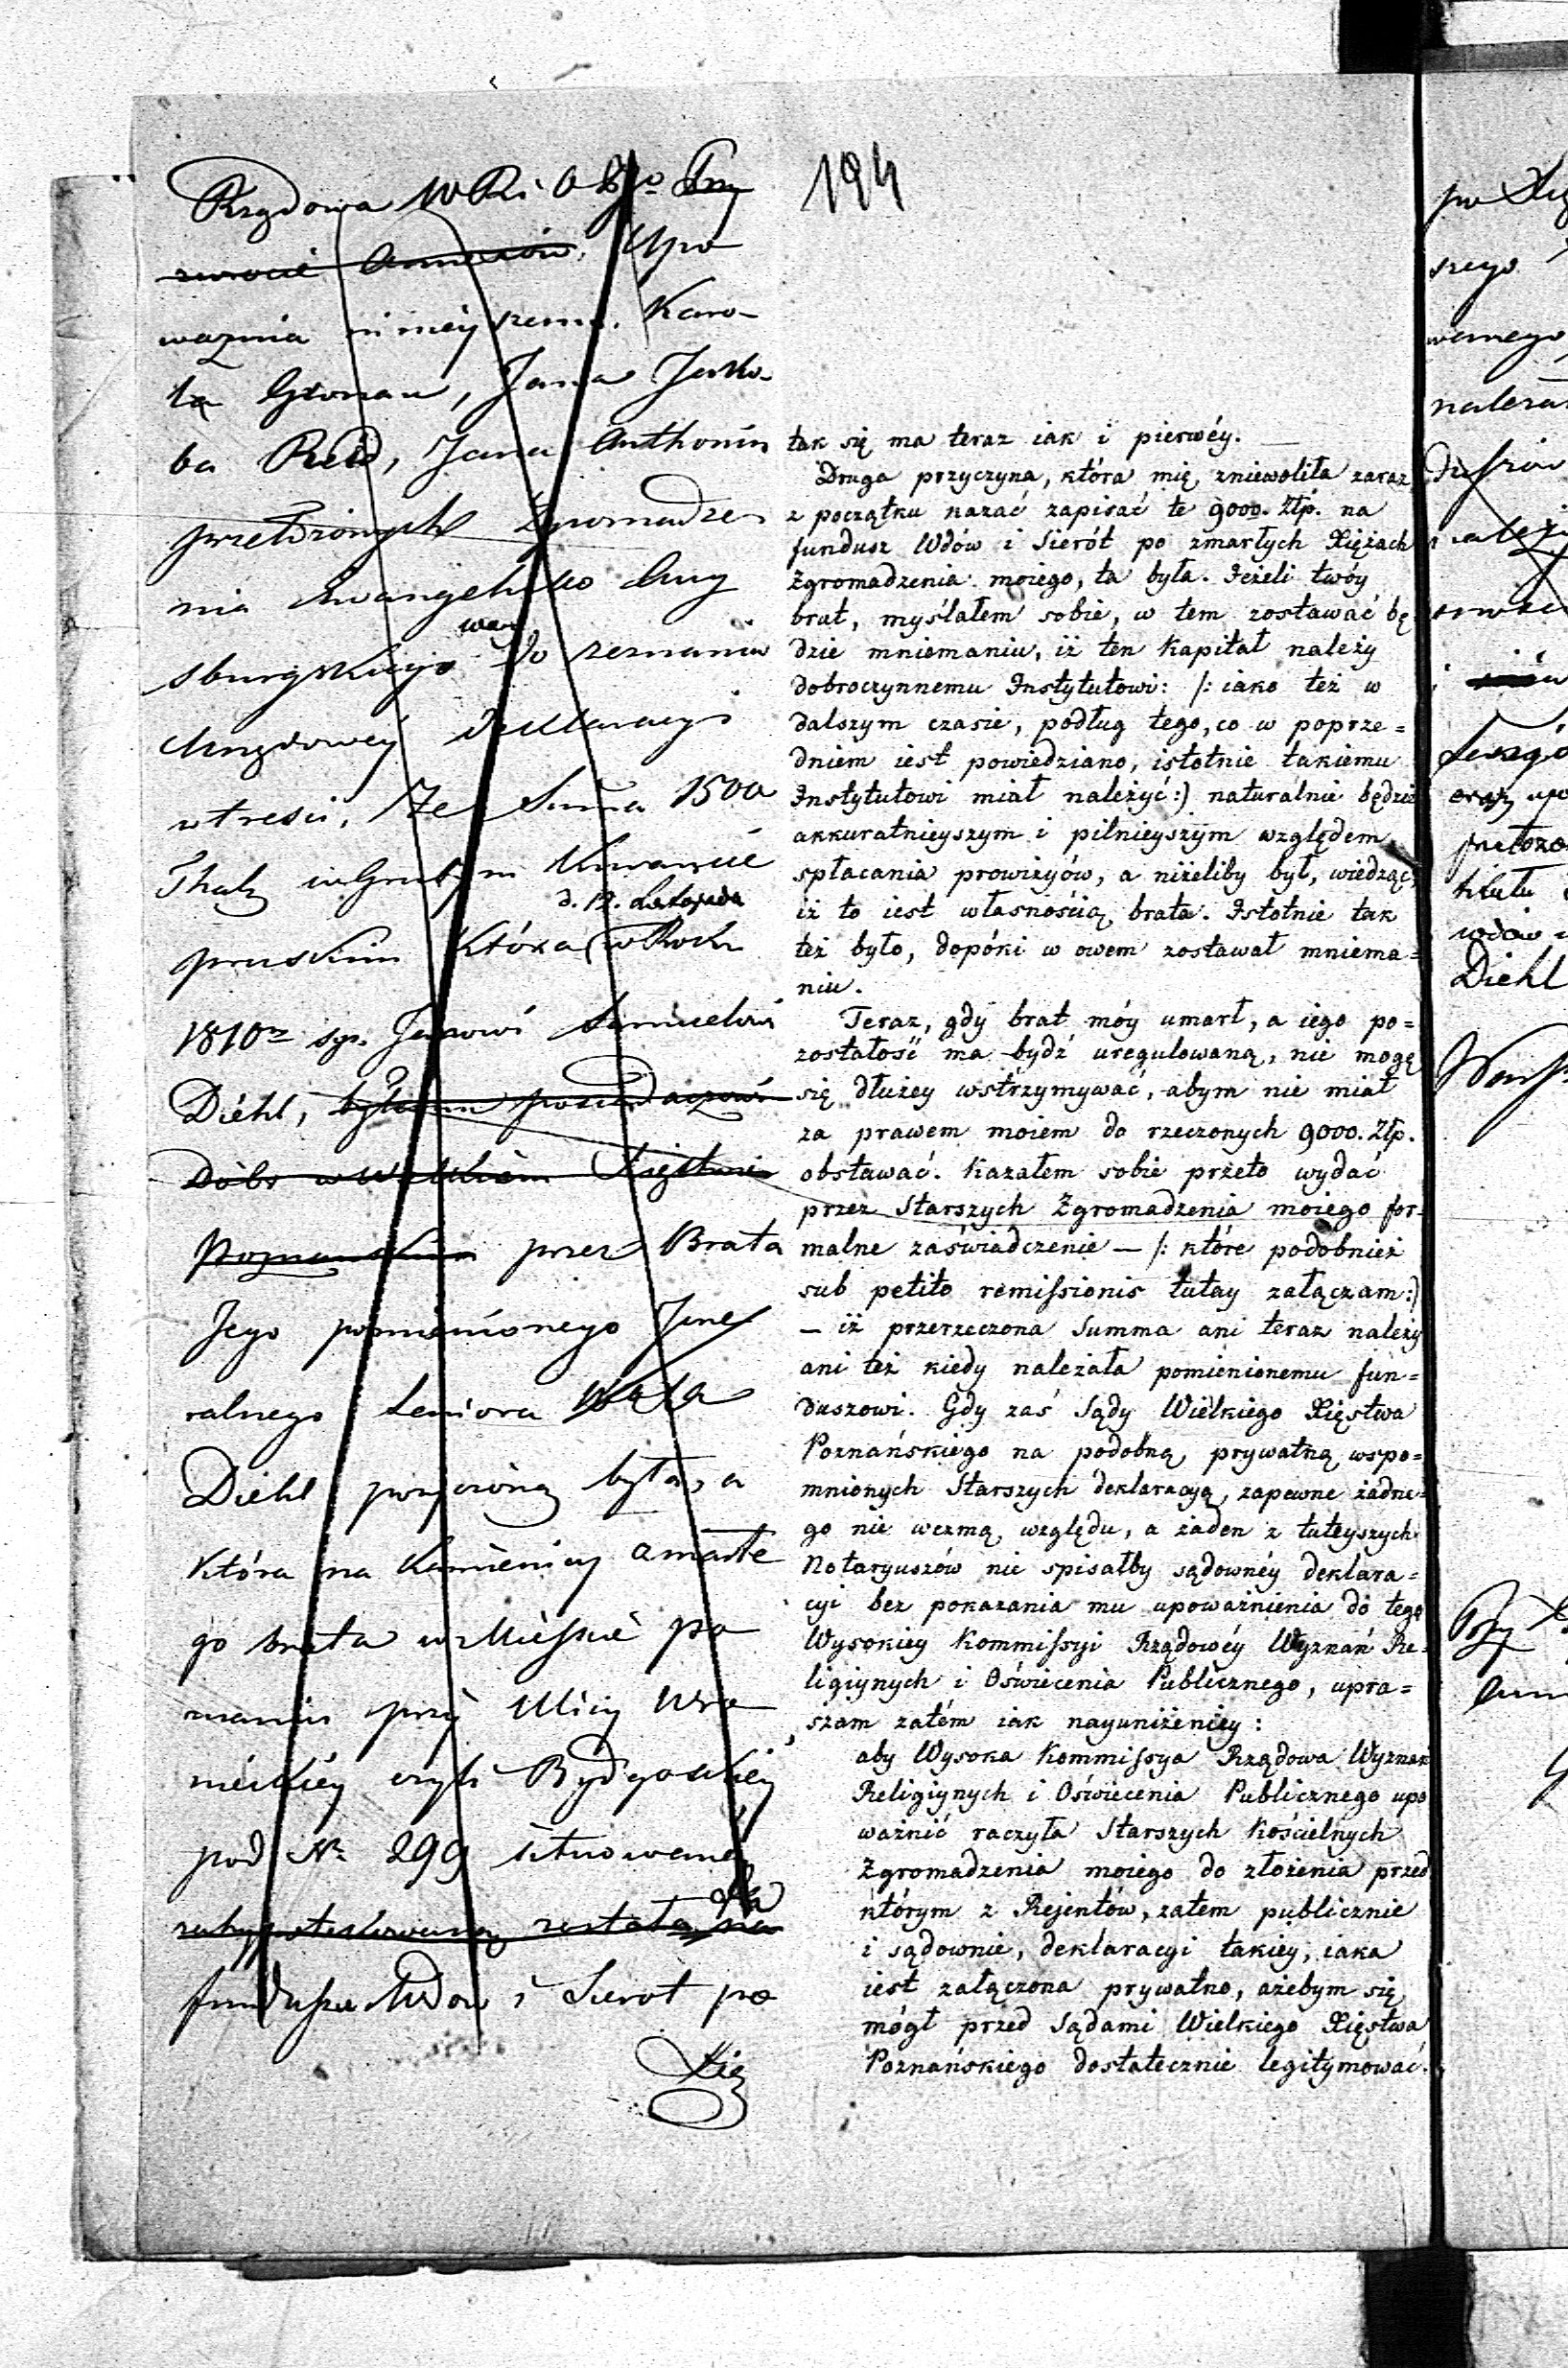 194
Rządowa W R i O P
Upo
waznia ninieyszem Karo
la Gronau, Jana Jako
ba Reid, Jana Anthonin
przełożonych Zgromadze
nia Ewangelicko Aug
sburgskiego do zeznania
Urzędowey deklaracyi
w treści, Ze Suma 1500
Thal. w Grubym Kurancie
d. 12. Listopada
pruskim Która w Roku
1810 Janowi Samuelowi
Diehl,
Dóbr w Wielkiem Xięstwie
Poznanskim przez Brata
Jego pomienionego Jene
ralnego Seniora
Diehl pozyczoną była, a
Która na Kamienicy zmarłe
go brata w Mieście Po
znaniu przy Ulicy Wro
nieckiey czyli
pod Nr 299 situowaney
zahypotekowaną została na
fundusz Wdow i Sierot po
Xię
tak się ma teraz iak i pierwéy. —
Druga przyczyna, która mię zniewoliła zaraz
z początku kazać zapisać te 9000. Złp. na
fundusz Wdów i Sierót po zmarłych Xiężach
Zgromadzenia moiego, ta była. Jeżeli twóy
brat, myślałem sobie, w tem zostawać bę
dzie mniemaniu, iż ten Kapitał należy
dobroczynnemu Instytutowi: /: iako też w
dalszym czasie, podług tego, co w poprze=
dniem iest powiedziano, istotnie takiemu
Instytutowi miał należyć :) naturalnie będzie
akkuratnieyszym i pilnieyszym względem
spłacania prowizyów, a niżeliby był, wiedząc,
iż to iest własnością brata. Istotnie tak
też było, dopóki w owem zostawał mniema=
niu.
Teraz, gdy brat móy umarł, a iego po=
zostałość ma bydź uregulowaną, nie mogę
się dłużey wstrzymywać, abym nie miał
za prawem moiem do rzeczonych 9000. Złp.
obstawać. Kazałem sobie przeto wydać
przez Starszych Zgromadzenia moiego for=
malne zaświadczenie — /: które podobnież
sub petito remissionis tutay załączam :)
— iż przerzeczona Summa ani teraz należy
ani też kiedy należała pomienionemu fun=
duszowi. Gdy zaś Sądy Wielkiego Xięstwa
Poznańskiego na podobną, prywatną, wspo=
mnionych Starszych deklaracyą, zapewne żadne=
go nie wezmą względu, a żaden z tuteyszych
Notaryuszów nie spisałby sądownéy deklara=
cyi bez pokazania mu upoważnienia do tego
Wysokiey Kommissyi Rządowéy Wyznań Re=
ligiynych i Oświecenia Publicznego, upra=
szam zatém iak nayuniżeniey:
aby Wysoka Kommissya Rządowa Wyznań
Religiynych i Oświecenia Publicznego upo
ważnić raczyła Starszych Kościelnych
Zgromadzenia moiego do złożenia przed
którym z Rejentów, zatem publicznie
i sądownie, deklaracyi takiey, iaka
iest załączona prywatno, ażebym się
mógł przed Sądami Wielkiego Xięstwa
Poznańskiego dostatecznie legitymować.
szego
Diehl